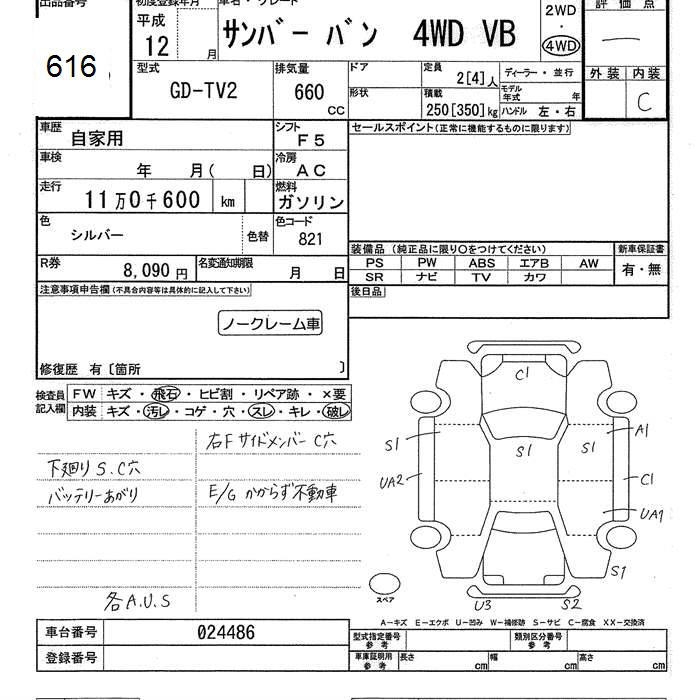 出品番号 初度登録年月 車名・グレード 2WD 評価点
平成 サンバー バン 4WD VB ・ —
616 12 月 4WD 外装 内装
型式 排気量 ドア 定員 2[4]人 ディーラー・並行 C
GD-TV2 660 CC 形状 積載 250[350]kg モデル年式 年
ハンドル 左・右
車歴 自家用 シフト F5 セールスポイント(正常に機能するものに限ります)
車検 年 月( 日) 冷房 AC
走行 11万0千600 km 燃料 ガソリン
色 シルバー 色替 色コード 821
装備品 (純正品に限り○をつけてください) 新車保証書
PS PW ABS エアB AW 有・無
SR ナビ TV カワ
R券 8,090円 名変通知期限 月 日
後日品
注意事項申告欄(不具合内容等は具体的に記入して下さい)
ノークレーム車
修復歴 有〔箇所 〕
検査員記入欄 FW キズ・飛石・ヒビ割・リペア跡・×要
内装 キズ・汚し・コゲ・穴・スレ・キレ・破し
右F サイドメンバー C穴
下廻り S.C穴
バッテリーあがり E/G かからず不動車
各A.U.S
C1
S1 S1 S1 A1
UA2 C1
UA1
S1
スペア U3 S2
A-キズ E-エクボ U-凹み W-補修跡 S-サビ C-腐食 XX-交換済
車台番号 024486 型式指定番号 参考 類別区分番号 参考
登録番号 車庫証明用 参考 長さ cm 幅 cm 高さ cm